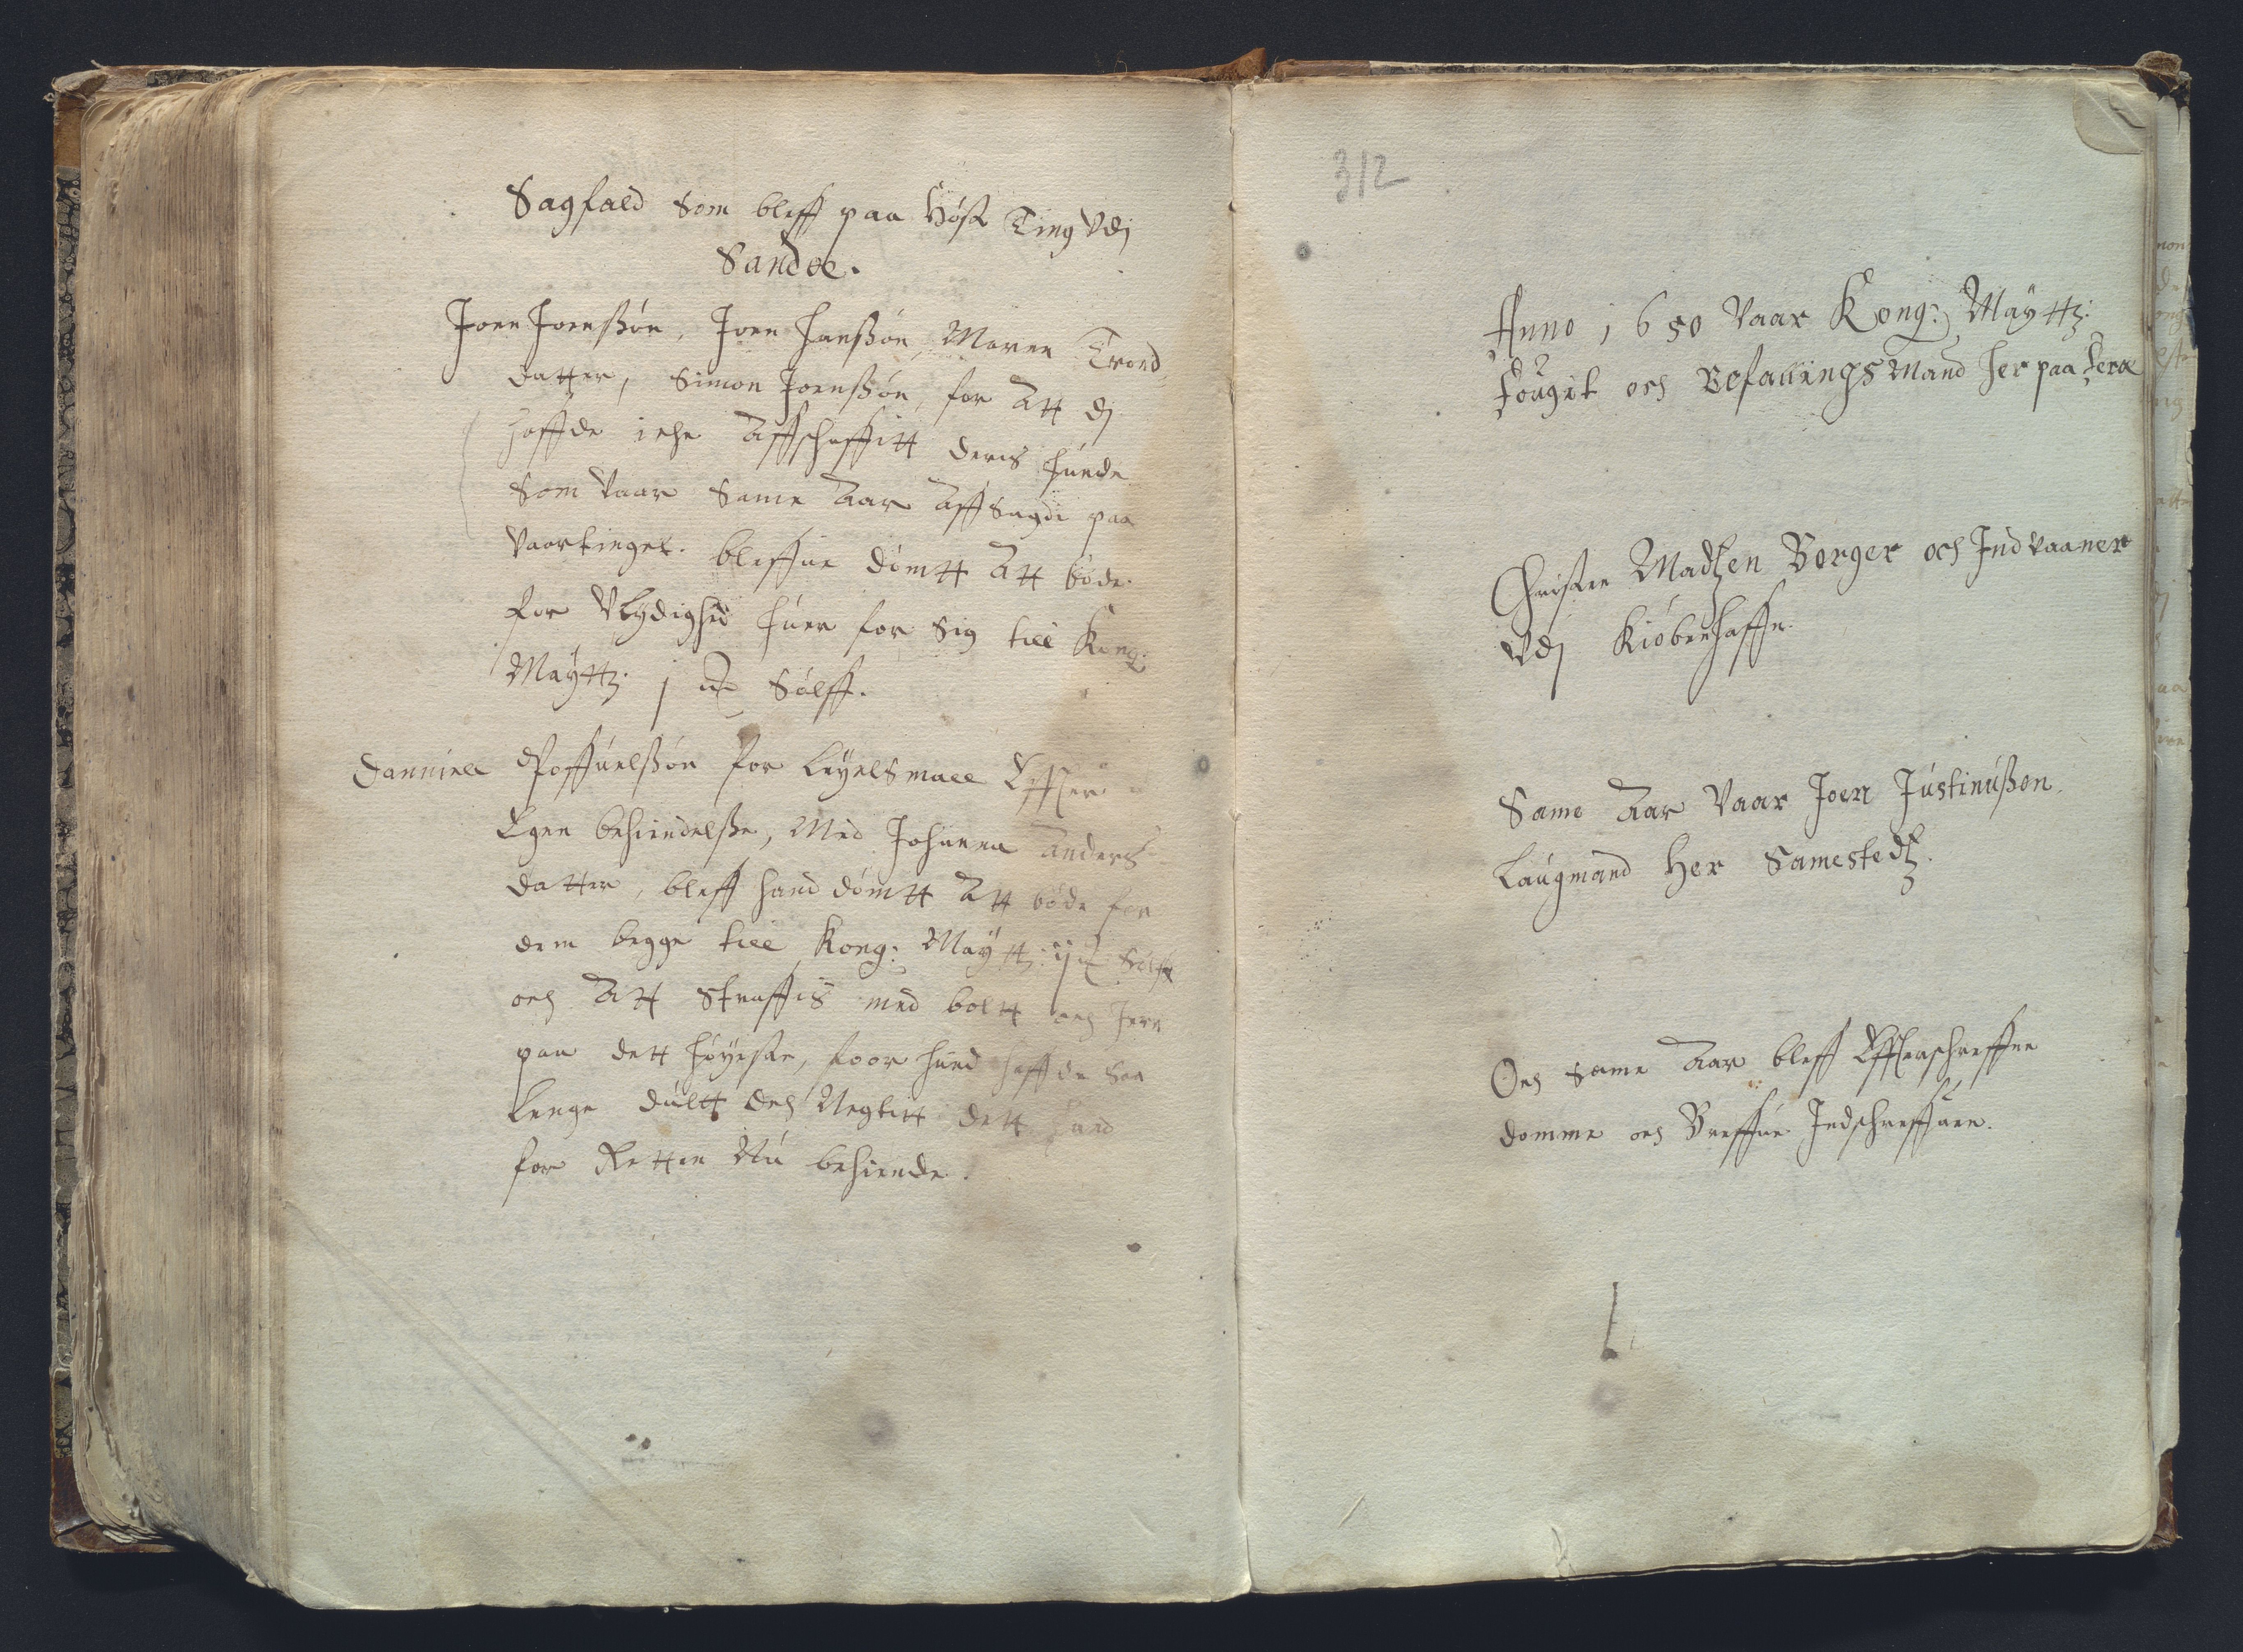 Sagfald Som bleff paa Høst Ting Vdj
Sandøe.
Joen Joenßøn, Joen Hanßøn, Maren Trond
datter, Simon Joenßøn, for Att dj
haffde icke Affschaffitt deris Hunde
Som Vaar Same Aar Aff Sagde paa
Vaartinget. bleffue dømtt Att bøde
for Vlydighed huer for Sig till Kong:
Maÿttz: j Sølff.
Danniell Poffuelßøn for Leyelsmaal Effter
Egen bekiendelße, Med Johanna Anders
datter, bleff hand dømtt Att bøde for
dem begge till Kong: Maÿttz: ij Sølff
och Att Straffis med boltt och Jern
paa dett høyeste, foor hand haffde Saa
Lenge dultt och Negtett dett hand
for Retten Nu bekiende.
312
Anno 1650 Vaar Kong: Maÿttz:
fougit och Befallings Mand her paa
Christen Madtzen Borger och Indvaaner
Vdj Kiøbenhaffn.
Same Aar Vaar Joen Justinußøn
Laugmand Her Samestedtz.
Och same Aar bleff Effterschreffne
domme och Breffue Indschreffuen.